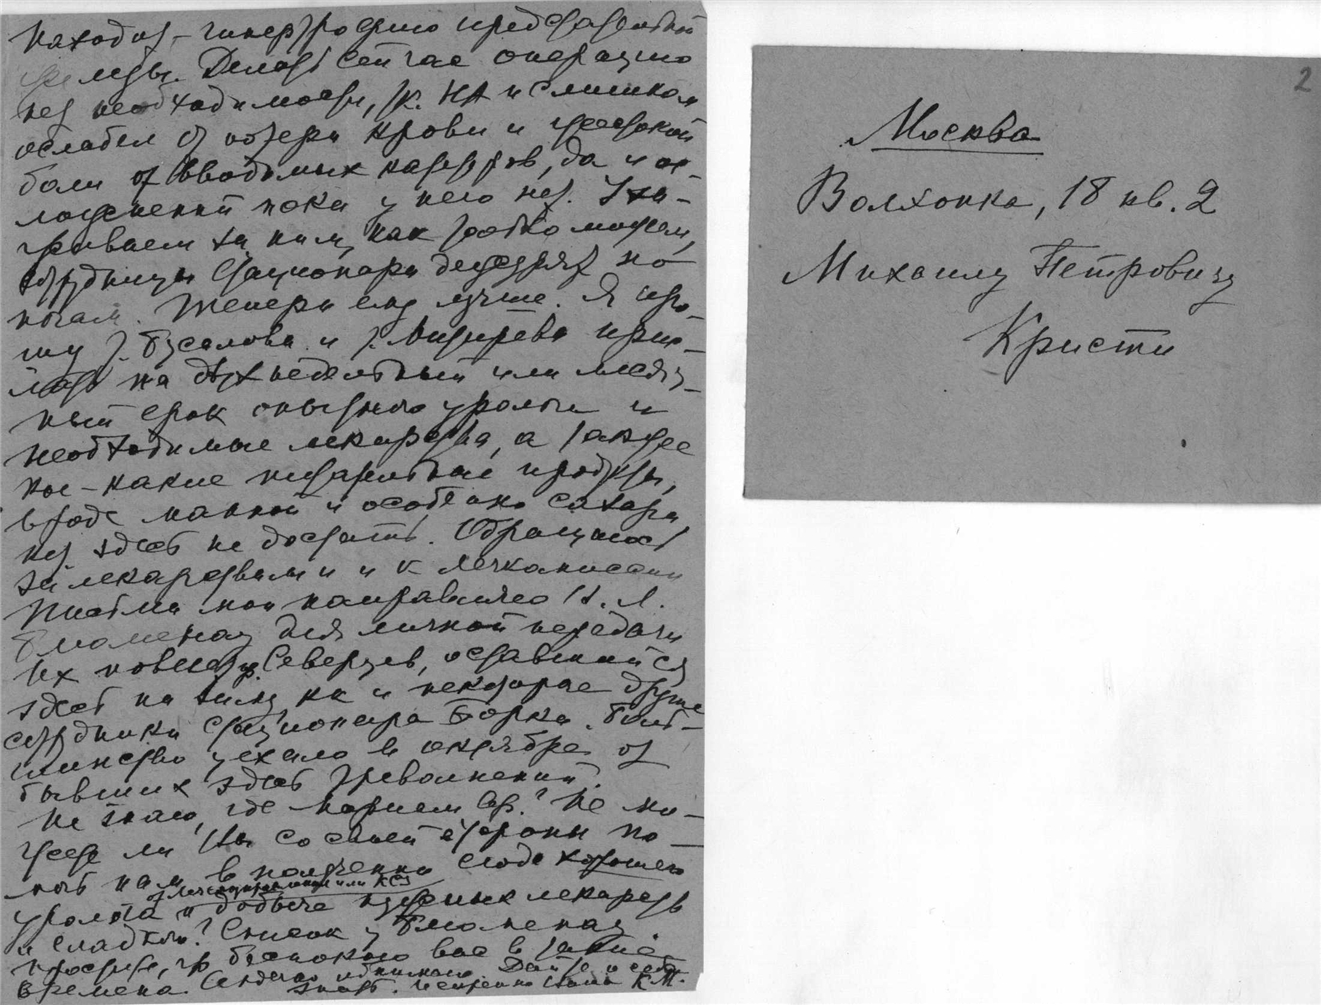 находят – гипертрофию предстательной
железы. Делать сейчас операцию
нет необходимости, т.к. НА и слишком
ослабел от потери крови и жестокой
боли от вводимых катетеров, да и ос-
ложнений пока у него нет. Уха-
живаем за ним, как только можем,
сотрудницы стационара дежурят по
ночам. Теперь ему лучше. Я про-
шу т. Бусалова и т. прис-
лать на двухнедельный или месяч-
ный срок опытного уролога и
необходимые лекарства, а также
кое-какие питательные продукты,
вроде манной и особенно сахара
нет здесь не достать. Обращаюсь
за лекарствами и к Лечкомиссии
Письма мои направляю
для личной передачи
их Северцов, оставшийся
здесь на зиму, как и некоторые другие
сотрудники стационара Борка. Боль-
шинство уехало в октябре от
бывших здесь треволнений.
Не знаю, где Мариам Ар.? Не мо-
жете ли Вы со своей стороны по-
мочь нам в получении сюда хорошего
уролога от Лечкомиссии или КСУ и добыче нужных лекарств
и сладкого? Список у
простите, что беспокою вас в такие
времена. Сердечно обнимаю. Дайте о себе
знать. Искренно Ваш К.М.
2
Москва
Волхонка, 18 кв. 2
Михаилу Петровичу
Кристи